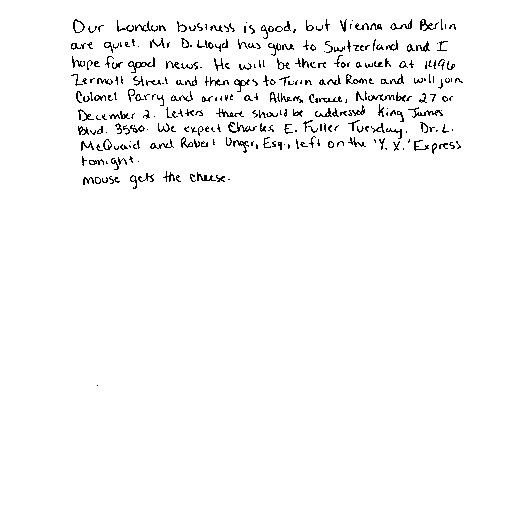 Our London business is good, but Vienna and Berlin
are quiet. Mr D. Lloyd has gone to Switzerland and I
hope for good news. He will be there for a week at 1496
Zermott Street and then goes to Turin and Rome and will join
Colonel Parry and arrive at Athens, Greece, November 27 or
December 2. Letters there should be addressed King James
Blvd. 3580. We expect Charles E. Fuller Tuesday. Dr. L.
McQuaid and Robert Unger, Esq., left on the 'Y. X.' Express
tonight.
mouse gets the cheese.